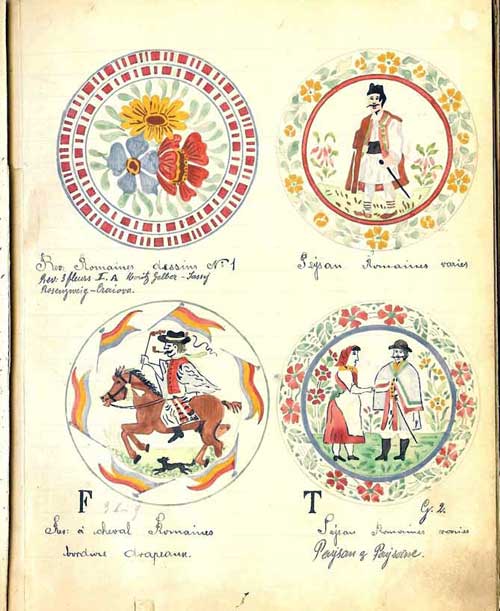 Rev. Romaines dessins No. 1
Rev. 3 fleurs I. A Moritz Gelber - Jassy
Rosenzweig - Craiova.
Peÿsan Romaines varies
F
T
G. 2.
à cheval Romaines
bordure drapeaux.
Peÿsan Romaines varies
Paysan & Paysane.